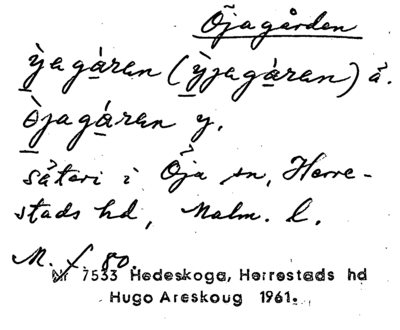 Öjagården
ỳagáran (ỳjagáran) ä.
ö̀jagáran y.
säteri i Öja sn, Herre-
stads hd, Malm. l.
M. f. 80.
Nr 7533 Hedeskoga, Herrestads hd
Hugo Areskoug 1961.